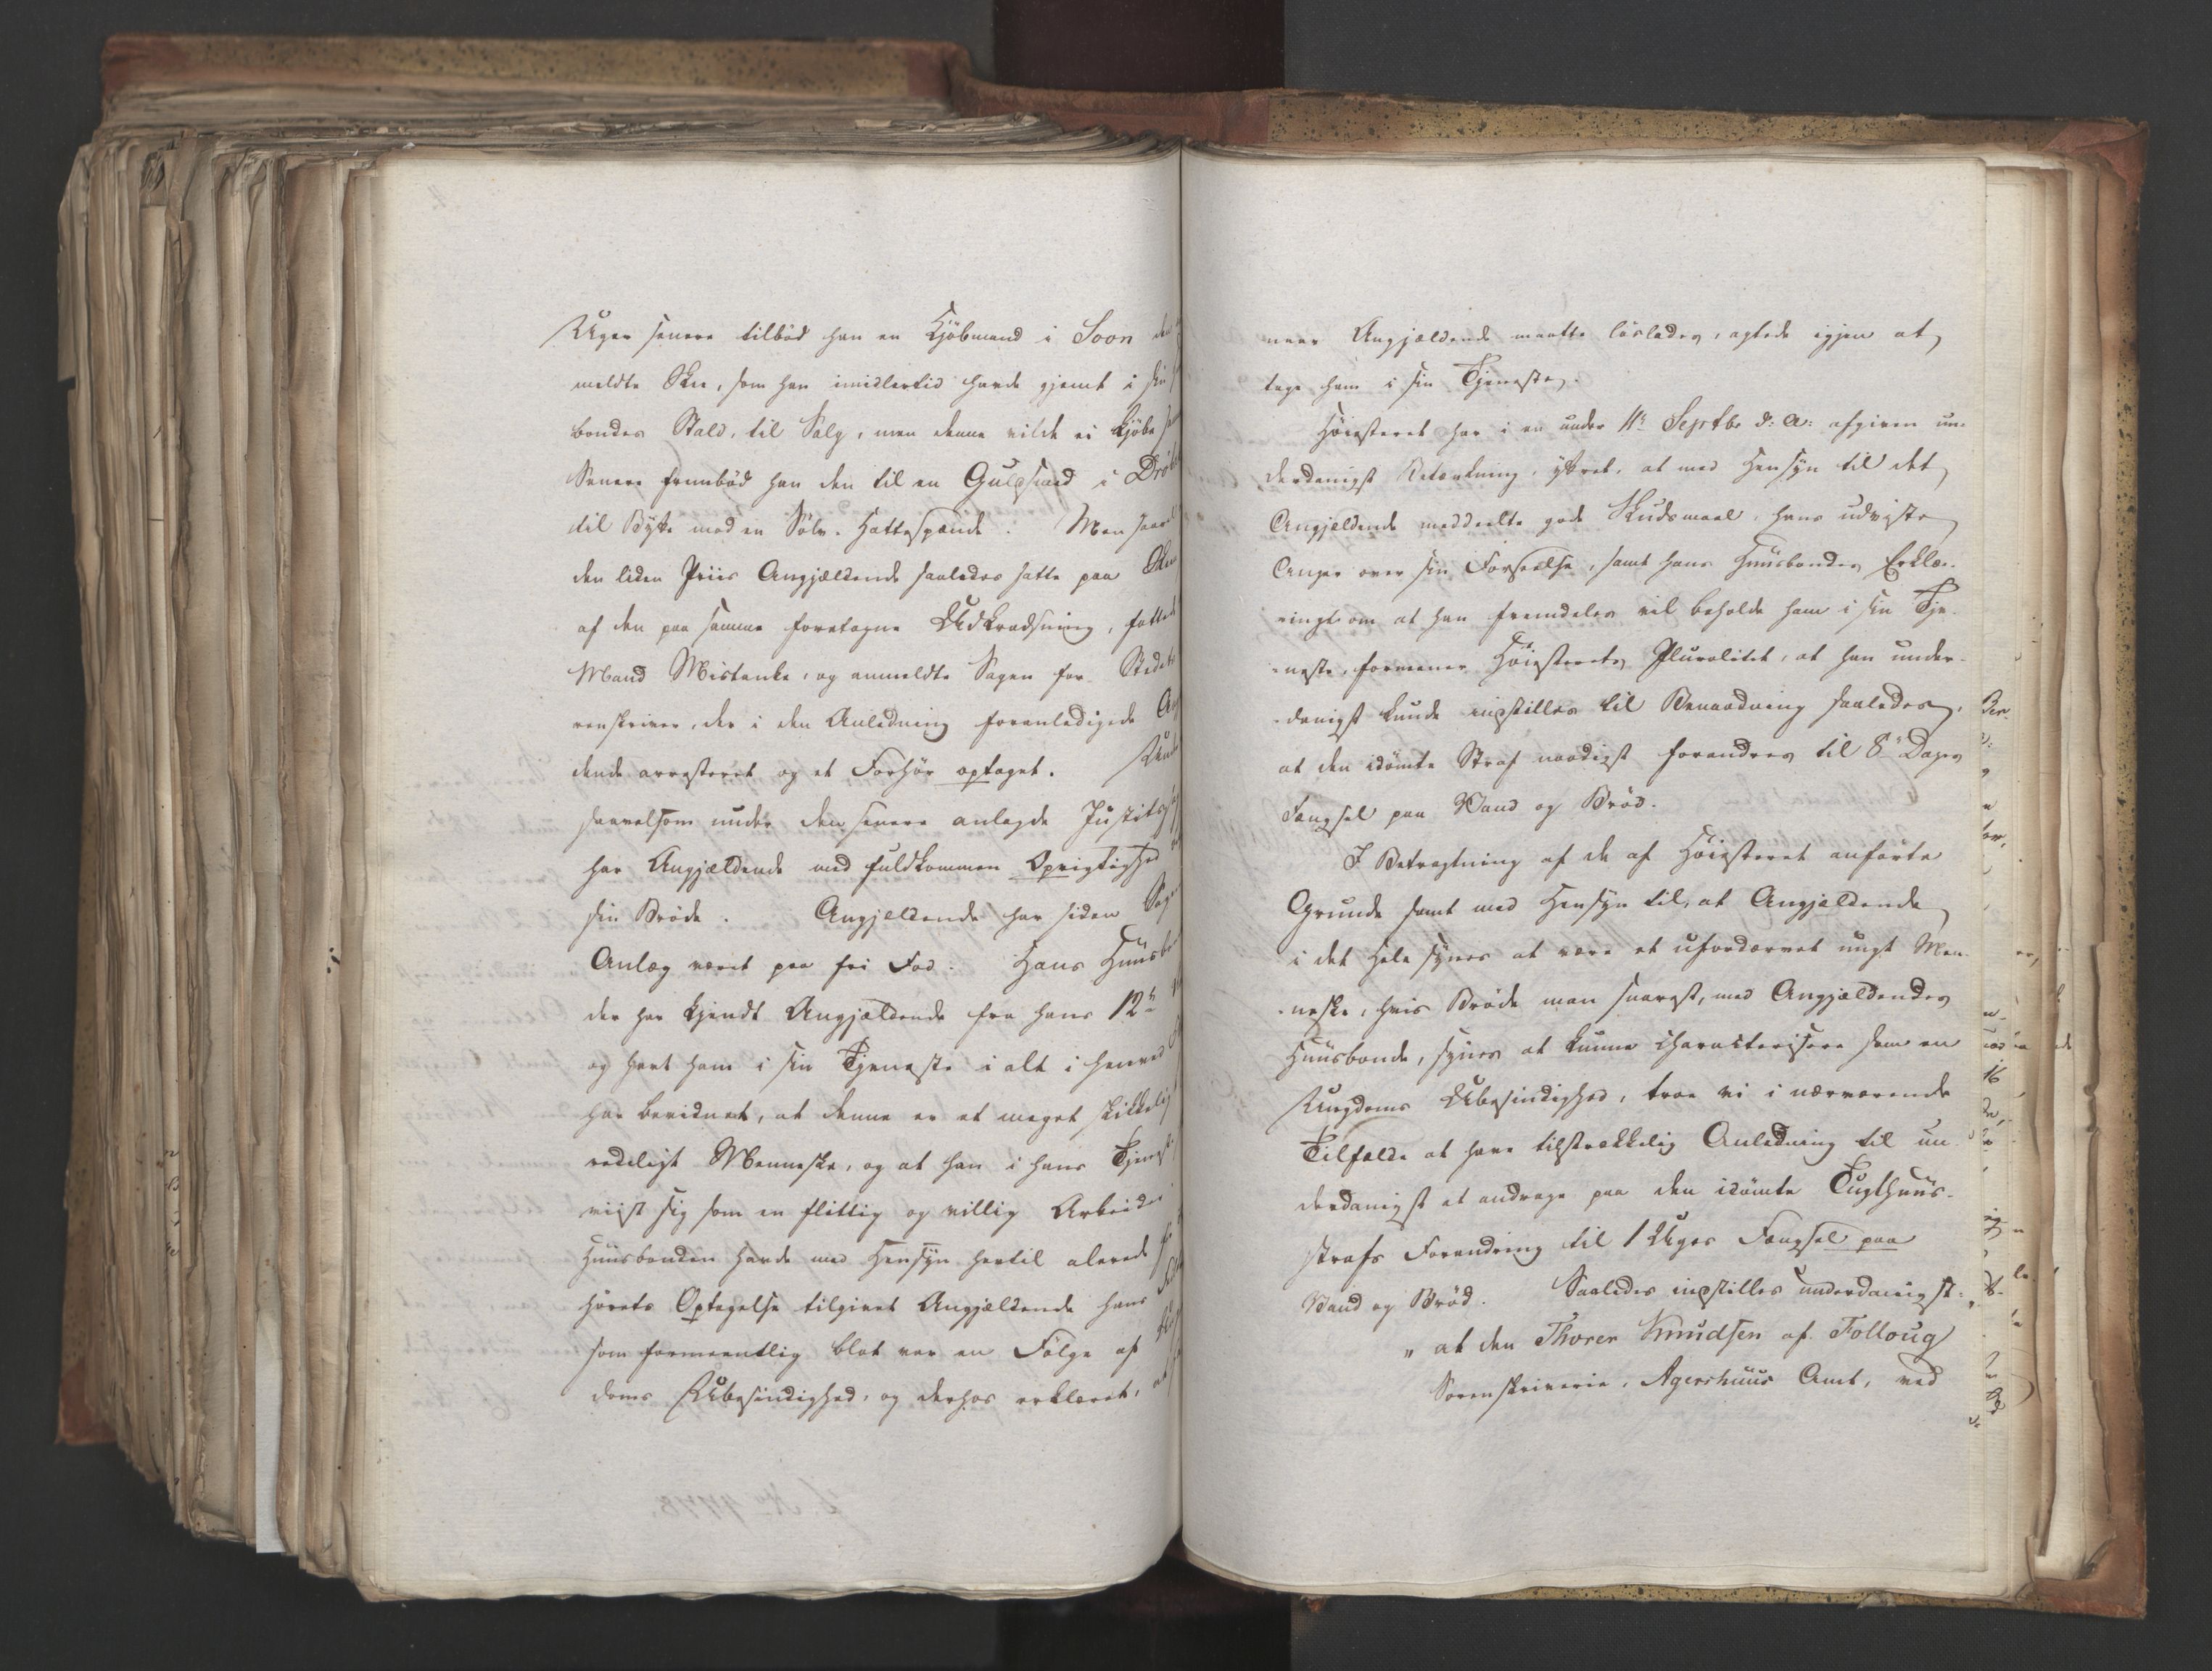 Uger senere tilbød han en Kjøbmand i Soon
meldte Skee, som han imidlertid havde gjemt i sin
bondes Stald, til Salg, men denne vilde ei kjøbe
Senere frembød han den til en Guldsmed i Drøb
til Bytte med en Sølv-Hattespænde. Men saavel
den liden Priis Angjældende saaledes satte paa Skeen
af den paa samme foretagne Udkradsning, fattede
Mand Mistanke, og anmeldte Sagen for Stedets
renskriver, der i den Anledning foranledigede
dende arresteret og et Forhør optaget. Under
saavelsom under den senere anlagde Justits
har Angjældende med fuldkommen Oprigtighed
sin Brøde. Angjeldende har siden Sagens
Anlæg været paa fri Fod. Hans Huusbond
der har kjendt Angjældende fra hans 12te
og havt ham i sin Tjeneste i alt i henved
har bevidnet, at denne er et meget skikkeligt
redeligt Menneske, og at han i hans Tjeneste
viist sig som en flittig og villig Arbeider
Huusbonden havde med Hensyn hertil alerede
hørets Optagelse tilgivet Angjældende hans
som formeentlig blot var en Følge af
doms Ubesindighed, og derhos erklæret, at
naar Angjældende maatte løslades, agtede igjen at
tage ham i sin Tjeneste.
Høiesteret har i en under 11te Septbr d: A: afgiven un-
derdanigst Betænkning, yttret, at med Hensyn til det
Angjeldende meddeelte gode Skudsmaal, hans udviste
Anger over sin Forseelse, samt hans Huusbondes Erklæ-
ring om at han fremdeles vil beholde ham i sin Tje-
neste, formener Høiesterets Pluralitet, at han under-
danigst kunde indstilles til Benaadning saaledes,
at den idømte Straf naadigst forandres til 8te Dages
Fængsel paa Vand og Brød.
I Betragtning af de af Høiesteret anførte
Grunde samt med Hensyn til, at Angjældende
i det Hele synes at være et ufordærvet ungt Men-
neske, hvis Brøde man snarest, med Angjældendes
Huusbonde, synes at kunne charakterisere som en
Ungdoms Ubesindighed, troe vi i nærværende
Tilfælde at have tilstrækkelig Anledning til un-
derdanigst at andrage paa den idømte Tugthuus-
strafs Forandring til 1 Uges Fængsel paa
Vand og Brød. Saaledes indstilles underdanigst:
" at den Thorer Knudsen af Folloug
Sorenskriverie, Agershuus Amt, ved